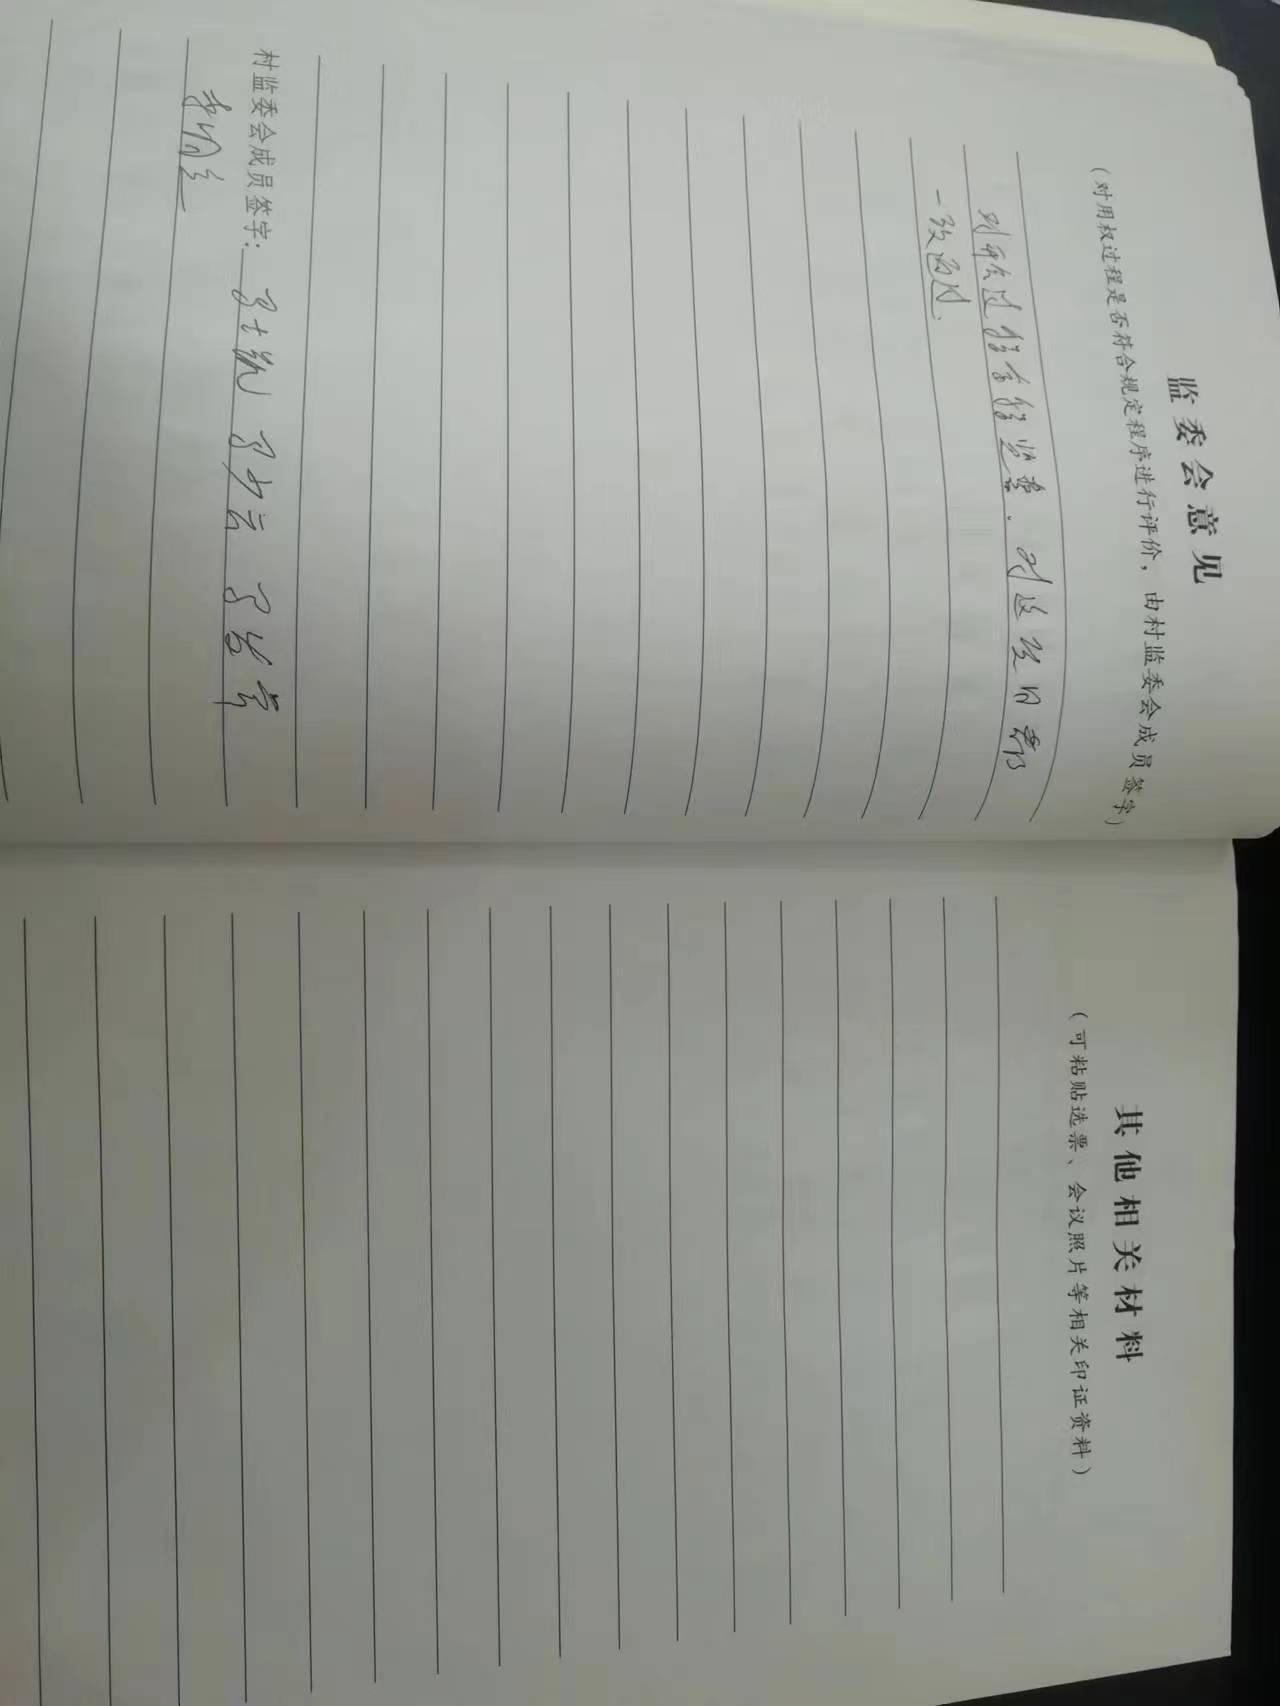 监委会意见
（对用权过程是否符合规定程序进行评价，由村监委会成员签字）
对开会过程全程监票．对这项目都
一致通过．
村监委会成员签字：
其他相关材料
（可粘贴选票、会议照片等相关印证资料）